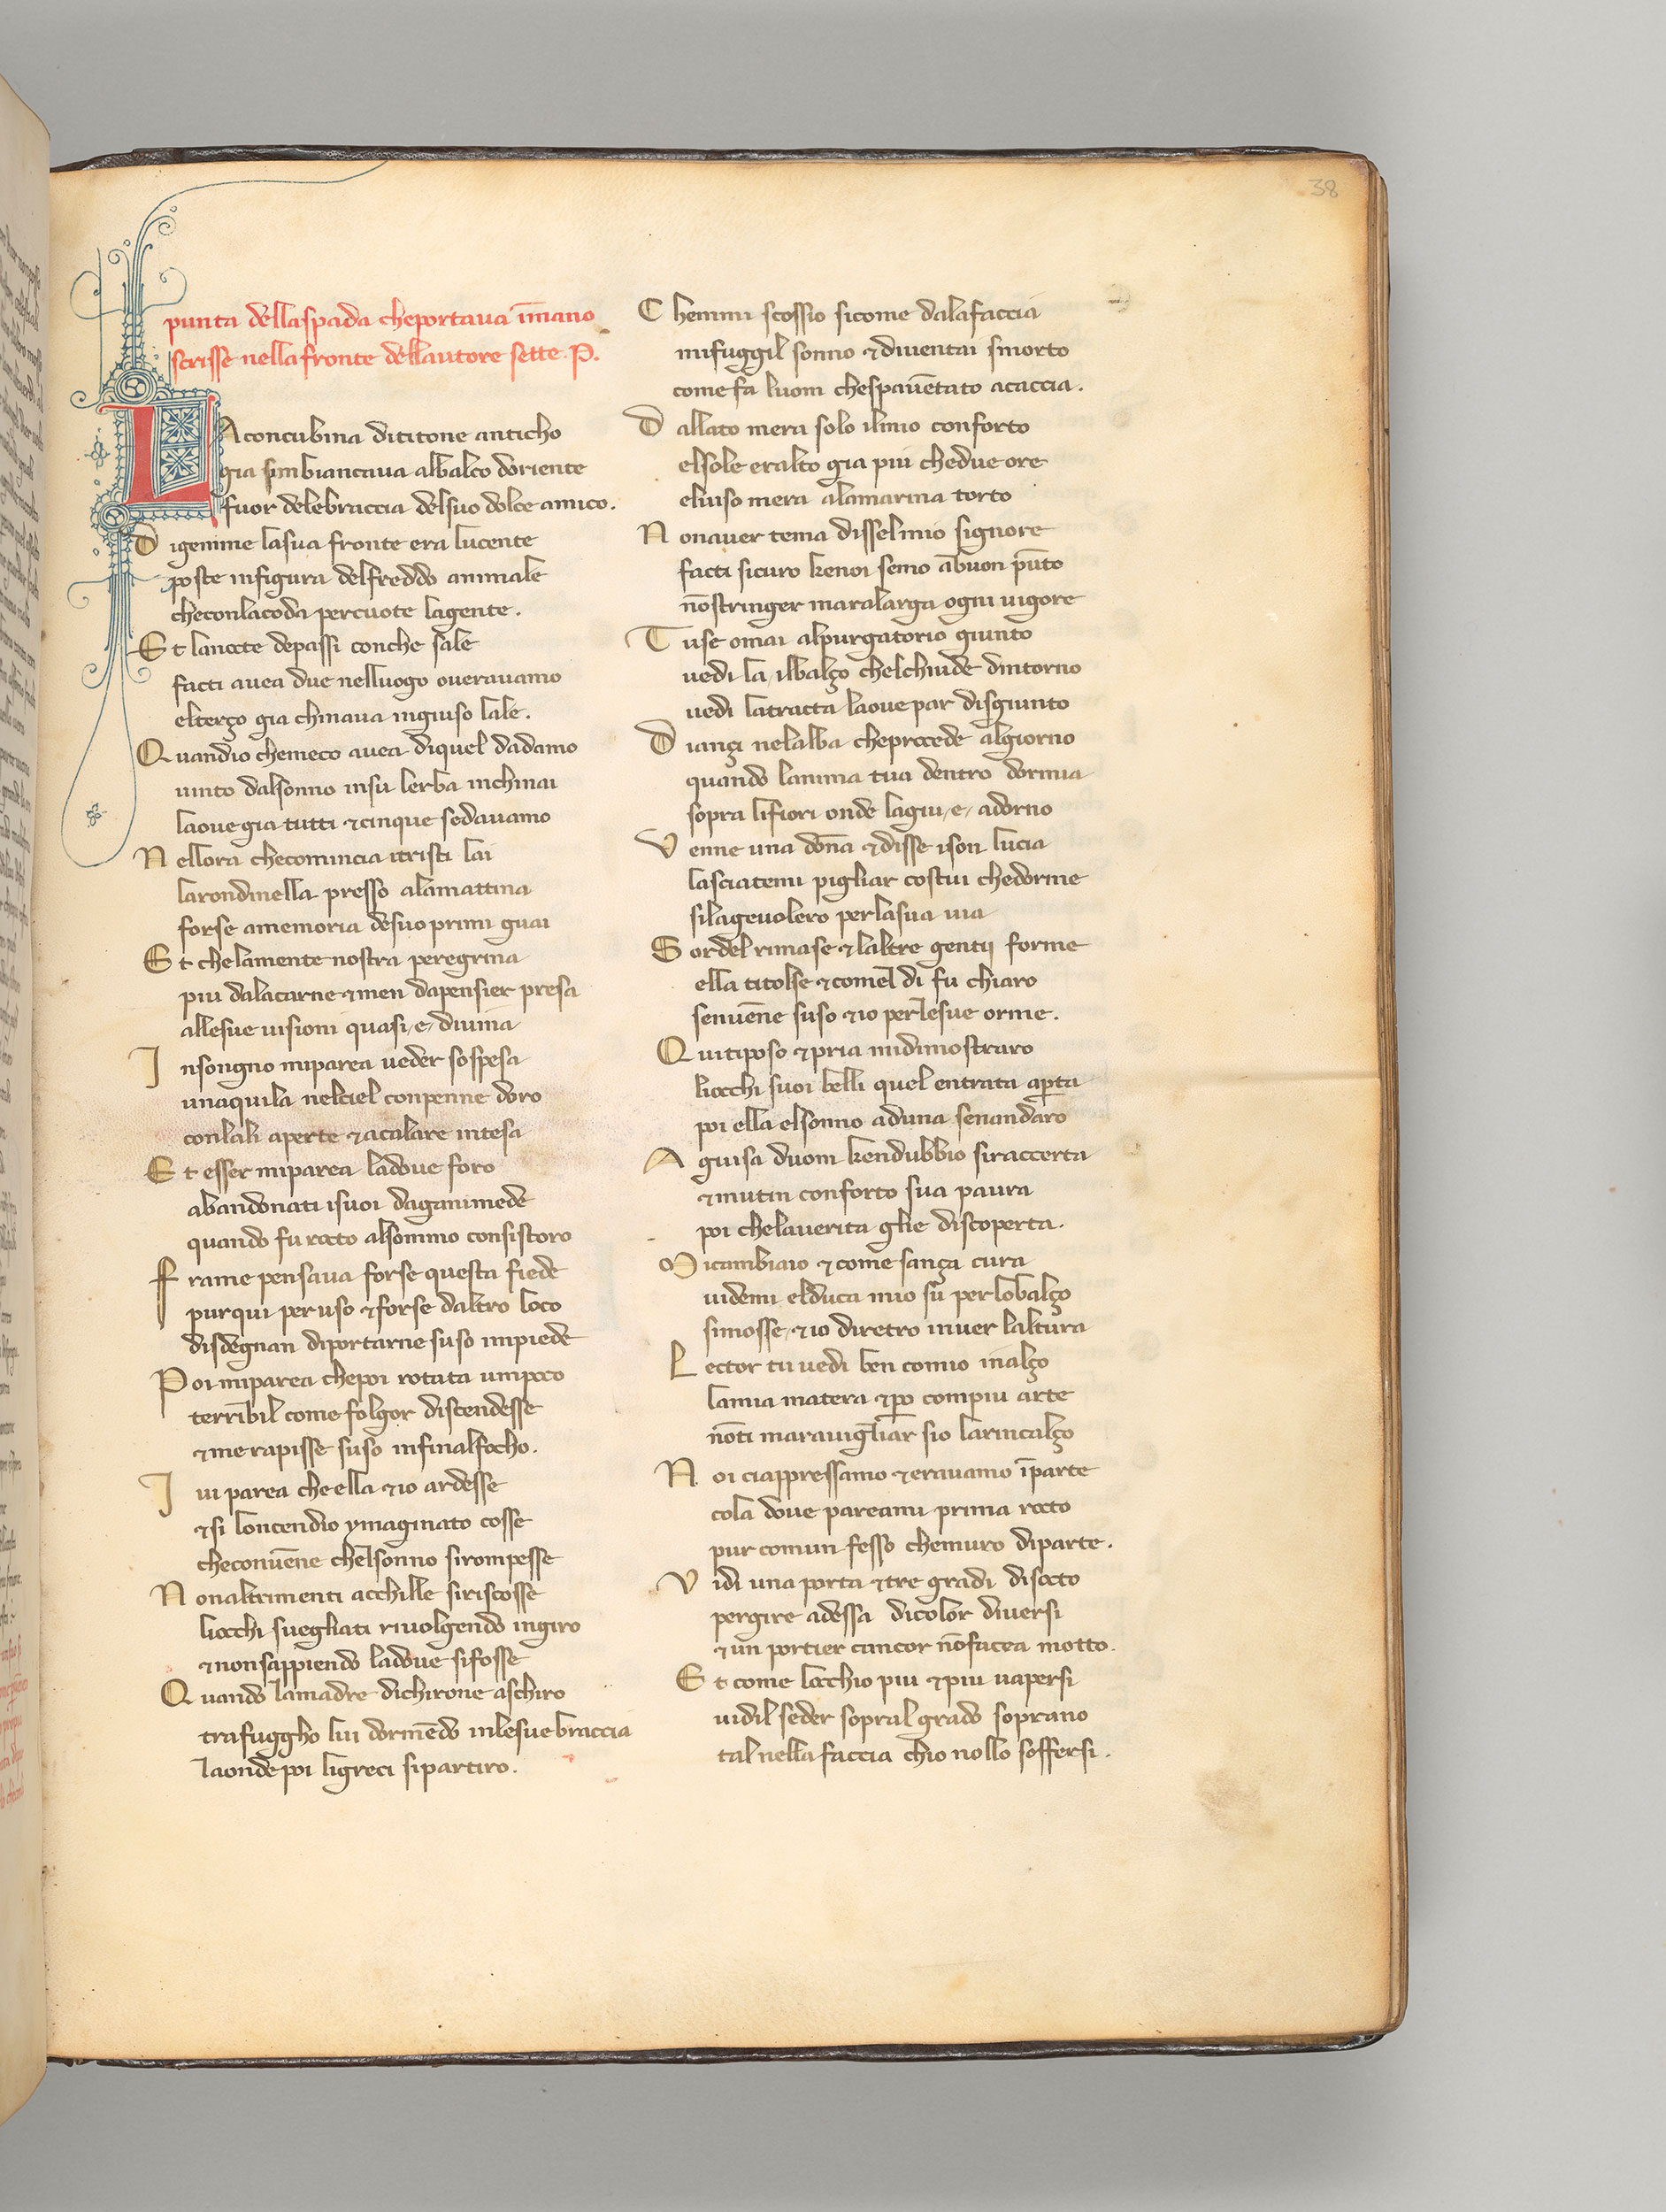 38
punta dellaspada cheportaua īmano
scrisse nellafronte dellautore sette .P.
LAconcubina dititone anticho
gia sinbiancaua albalco doriente
fuor delebraccia delsuo dolce amico.
Digemme lasua fronte era lucente
poste infigura delfreddo animale
checonlacoda percuote lagente.
Et lanocte depassi conche sale
facti auea due nelluogo ouerauamo
elterço gia chinaua ingiuso lale.
Quandio chemeco auea diquel dadamo
uinto dalsonno insu lerba inchinai
laoue gia tutti ⁊cinque sedauamo
Nellora checomincia itristi lai
larondinella presso alamattina
forse amemoria desuo primi guai
Et chelamente nostra peregrina
piu dalacarne ⁊men dapensier presa
allesue uisioni quasi, e, diuina
Insongno miparea ueder sospesa
unaquila nelciel conpenne doro
conlali aperte ⁊acalare intesa
Et esser miparea ladoue foro
abandonati isuoi daganimede
quando fu rocto alsommo consistoro
Frame pensaua forse questa fiede
purqui per uso ⁊forse daltro loco
disdegnan diportarne suso impiede
Poi miparea chepoi rotata unpoco
terribil come folgor discendesse
⁊me rapisse suso infinalfocho.
Iui parea che ella ⁊io ardesse
⁊si loncendio ymaginato cosse
checonuēne chelsonno sirompesse
Nonaltrimenti acchille siriscosse
liocchi suegliati riuolgendo ingiro
⁊nonsappiendo ladoue sifosse
Quando lamadre dichirone aschiro
trafuggho lui dormēdo inlesue braccia
laonde poi ligreci sipartiro.
Chemmi scossio sicome dalafaccia
mifuggil sonno ⁊diuentai smorto
come fa luom chespauētato acaccia.
Dallato mera solo ilmio conforto
elsole eralto gia piu chedue ore
eluiso mera alamarina torto
Nonauer tema disselmio signore
facti sicuro kenoi semo abuon pūto
nōstringer maralarga ogni uigore
Tuse omai alpurgatorio giunto
uedi la, ilbalço chelchiude dintorno
uedi latracta laoue par disgiunto
Diançi nelalba cheprecede algiorno
quando lanima tua dentro dormia
sopra lifiori onde lagiu, e, adorno
Venne una dōna ⁊disse ison lucia
lasciatemi pigliar costui chedorme
silageuolero perlasua uia
Sordel rimase ⁊laltre gentij forme
ella titolse ⁊comel di fu chiaro
senuēne suso ⁊io perlesue orme.
Quitiposo ⁊pria midimostraro
liocchi suoi belli quel entrata aperta
poi ella elsonno aduna senandaro
Aguisa duom kendubbio siraccerta
⁊mutin conforto sua paura
poi chelauerita glie discoperta.
Micambiaio ⁊come sança cura
uidemi elduca mio su perlobalço
simosse, ⁊io diretro inuer laltura
Lector tu uedi ben comio inalço
lamia matera ⁊po compiu arte
nōti marauigliar sio larincalço
Noi ciappressamo ⁊erauamo īparte
cola doue pareami prima rocto
pur comun fesso chemuro diparte.
Vidi una porta ⁊tre gradi disocto
pergire adessa dicolor diuersi
⁊un portier cancor nōfacea motto.
Et come locchio piu ⁊piu uapersi
uidil seder sopral grado soprano
tal nella faccia chio nollo soffersi.